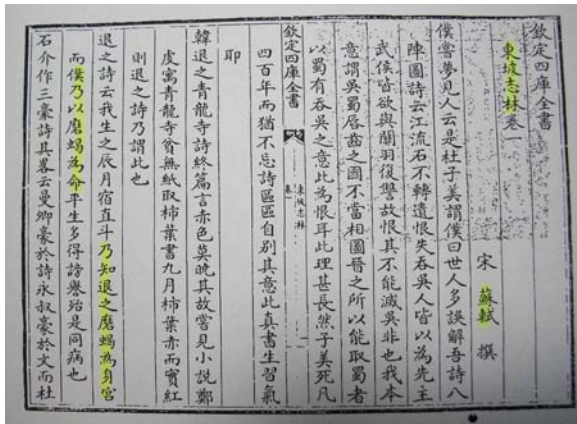 欽定四庫全書
東坡志林卷一
宋 蘇軾 撰
僕嘗夢見人云是杜子美謂僕曰世人多誤解吾詩八
陣圖詩云江流石不轉遺恨失吞吳人皆以為先主
武侯皆欲與關羽復讐故恨其不能滅吳非也我本
意謂吳蜀唇齒之國不當相圖晉之所以能取蜀者
以蜀有吞吳之意此為恨耳此理甚長然子美死凡
欽定四庫全書
東坡志林
卷一
四百年而猶不忘詩區區自別其意此真書生習氣
耶
韓退之青龍寺詩終篇言赤色莫曉其故嘗見小說鄭
虔寓青龍寺貧無紙取柿葉書九月柿葉赤而實紅
則退之詩乃謂此也
退之詩云我生之辰月宿直斗乃知退之磨蝎為身宮
而僕乃以磨蝎為命平生多得謗譽殆是同病也
石介作三豪詩其畧云曼卿豪於詩永叔豪於文而杜